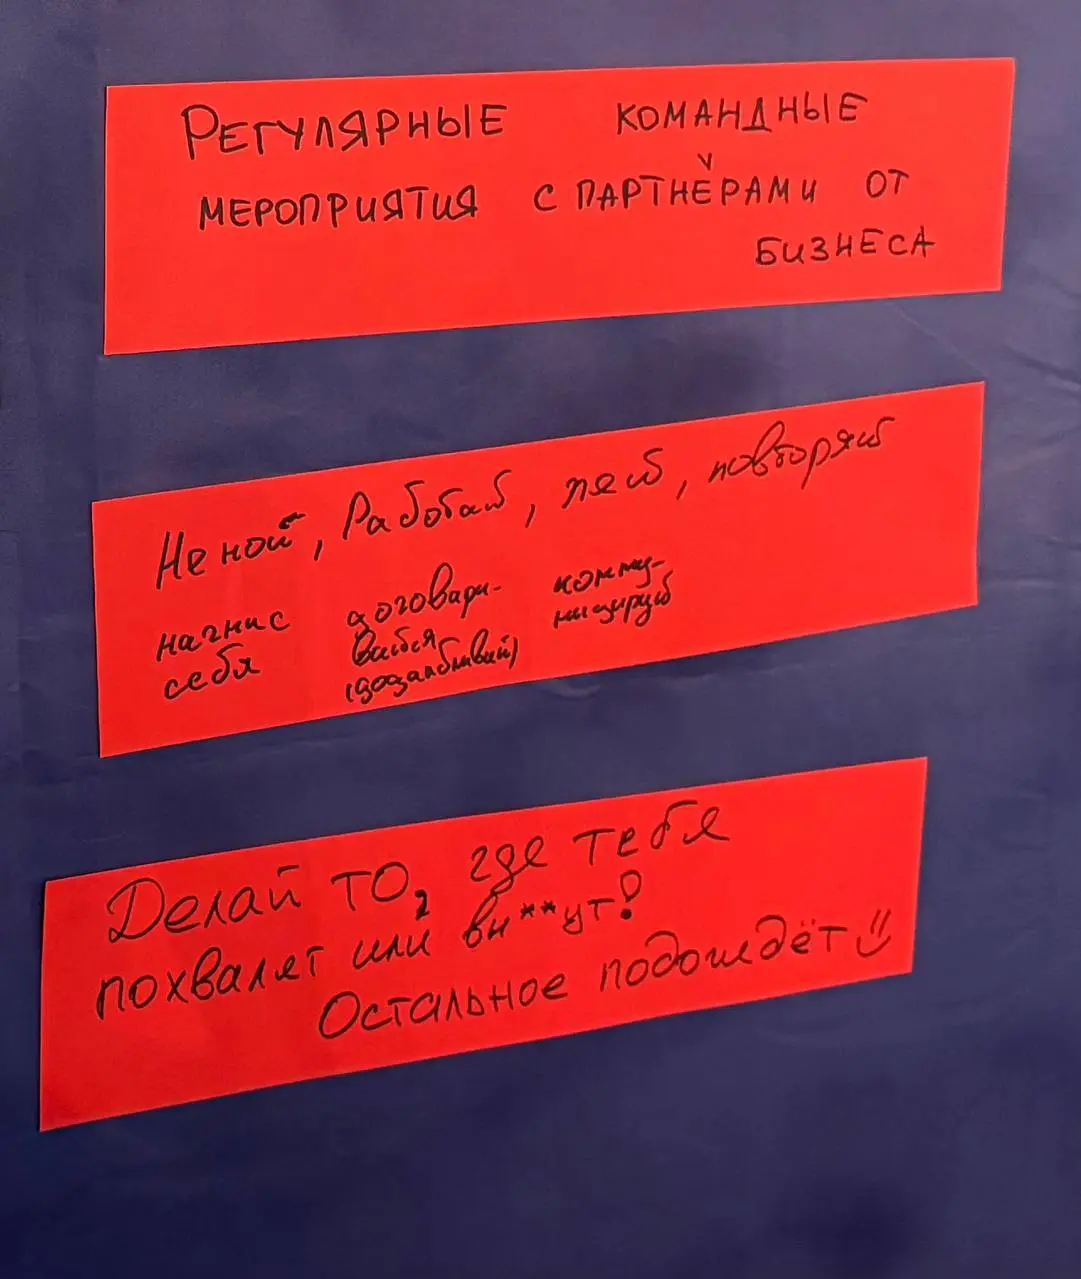 РЕГУЛЯРНЫЕ КОМАНДНЫЕ
МЕРОПРИЯТИЯ С ПАРТНЁРАМИ ОТ
БИЗНЕСА
Не ной, Работай, пей, повторяй
начни с договари- комму-
себя вайся ницируй
(додалбливай)
Делай то, где тебя
похвалят или вы**ут!
Остальное подождёт